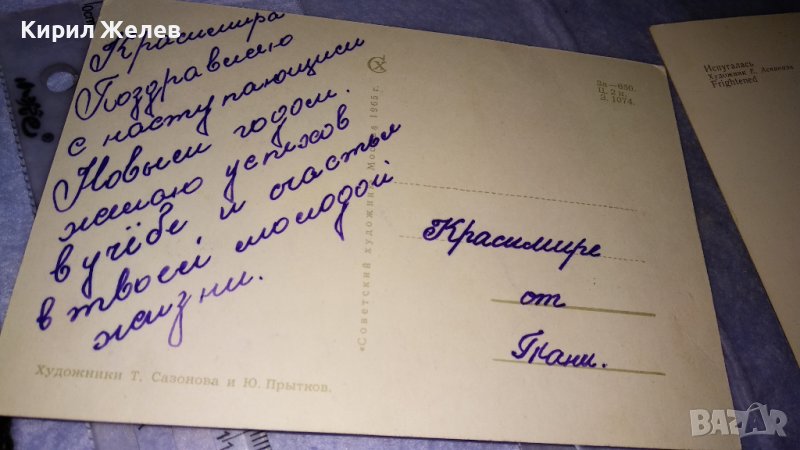 Кирил Желев
Красимира
Поздравляю
с наступающим
Новым годом.
желаю успехов
в учёбе и счастья
в твоей молодой
жизни.
Художники Т. Сазонова и Ю. Прытков.
«Советский художник» Москва 1965 г.
За—650.
Ц. 2 к.
З. 1074.
Красимире
от
Грани.
Испугалась
Художник Е.
Frightened
BAZAR